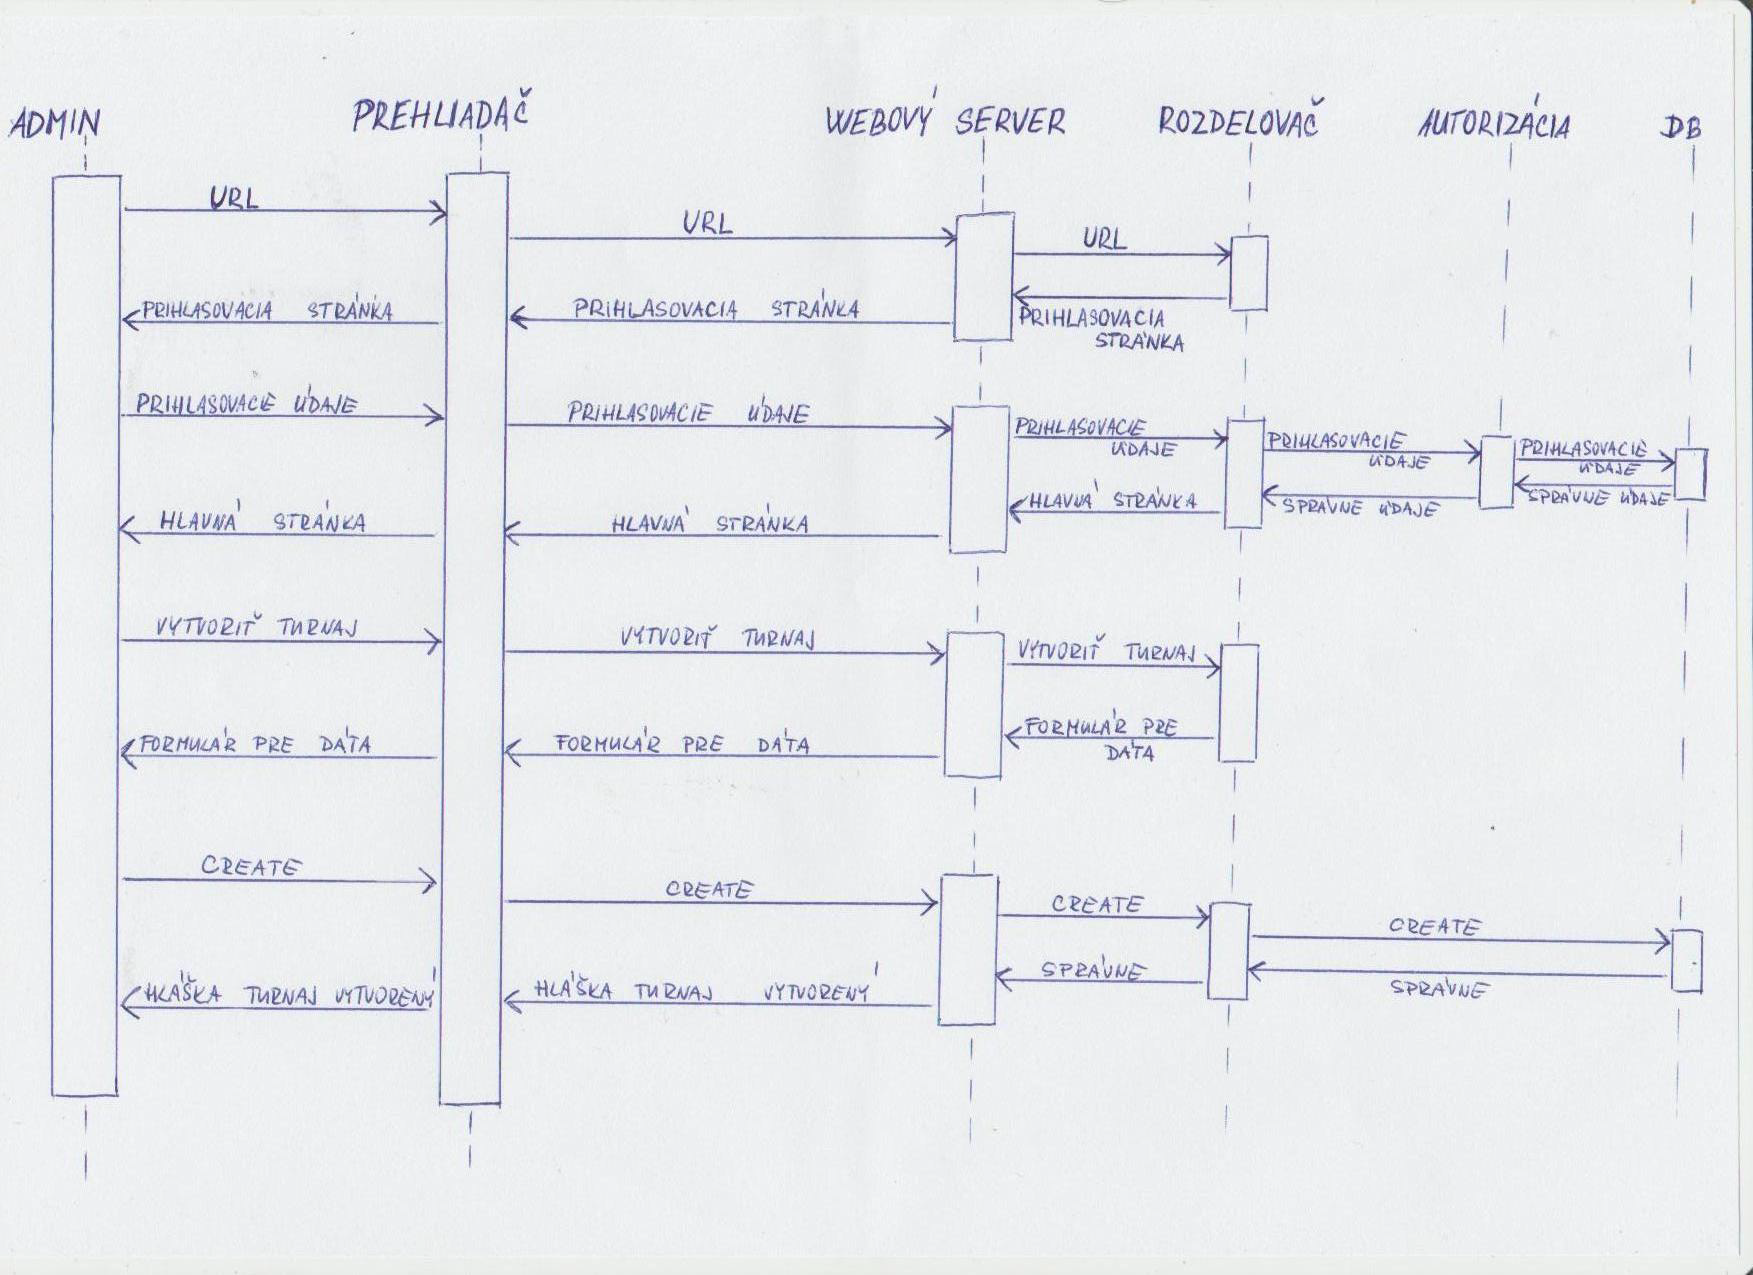 ADMIN
PREHLIADAČ
WEBOVÝ SERVER
ROZDELOVAČ
AUTORIZÁCIA
DB
URL
URL
URL
PRIHLASOVACIA STRÁNKA
PRIHLASOVACIA STRÁNKA
PRIHLASOVACIA
STRÁNKA
PRIHLASOVACIE ÚDAJE
PRIHLASOVACIE ÚDAJE
PRIHLASOVACIE
ÚDAJE
PRIHLASOVACIE
ÚDAJE
PRIHLASOVACIE
ÚDAJE
HLAVNÁ STRÁNKA
HLAVNÁ STRÁNKA
HLAVNÁ STRÁNKA
SPRÁVNE ÚDAJE
SPRÁVNE ÚDAJE
VYTVORIŤ TURNAJ
VYTVORIŤ TURNAJ
VYTVORIŤ TURNAJ
FORMULÁR PRE DÁTA
FORMULÁR PRE DÁTA
FORMULÁR PRE
DÁTA
CREATE
CREATE
CREATE
CREATE
HLÁŠKA TURNAJ VYTVORENÝ
HLÁŠKA TURNAJ VYTVORENÝ
SPRÁVNE
SPRÁVNE